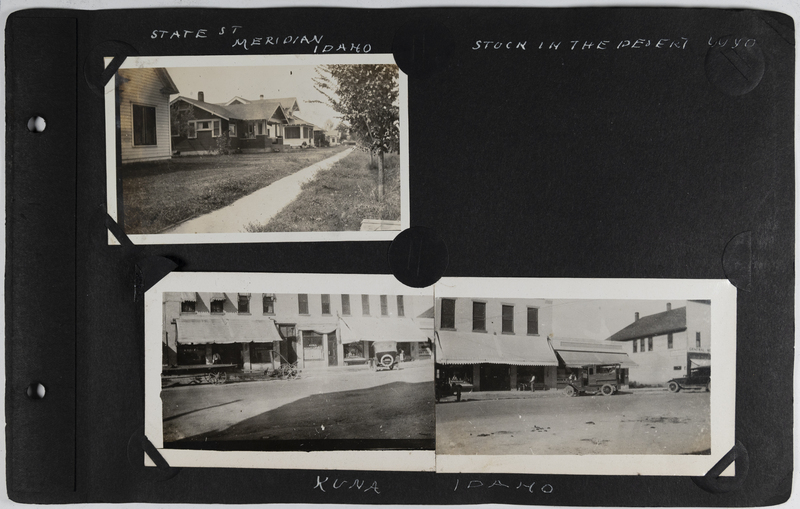 STATE ST
MERIDIAN
IDAHO
STUCK IN THE DESERT WYO
KUNA IDAHO